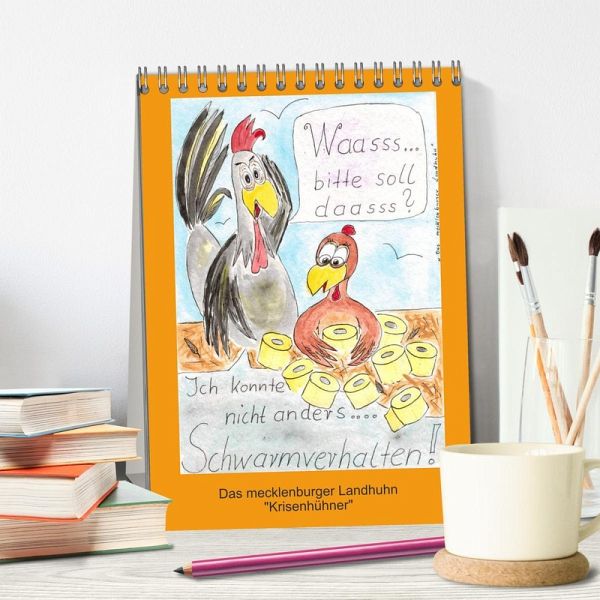 Waasss...
bitte soll
daasss?
"Das mecklenburger Landhuhn"
Ich konnte
nicht anders....
Schwarmverhalten!
Das mecklenburger Landhuhn
"Krisenhühner"